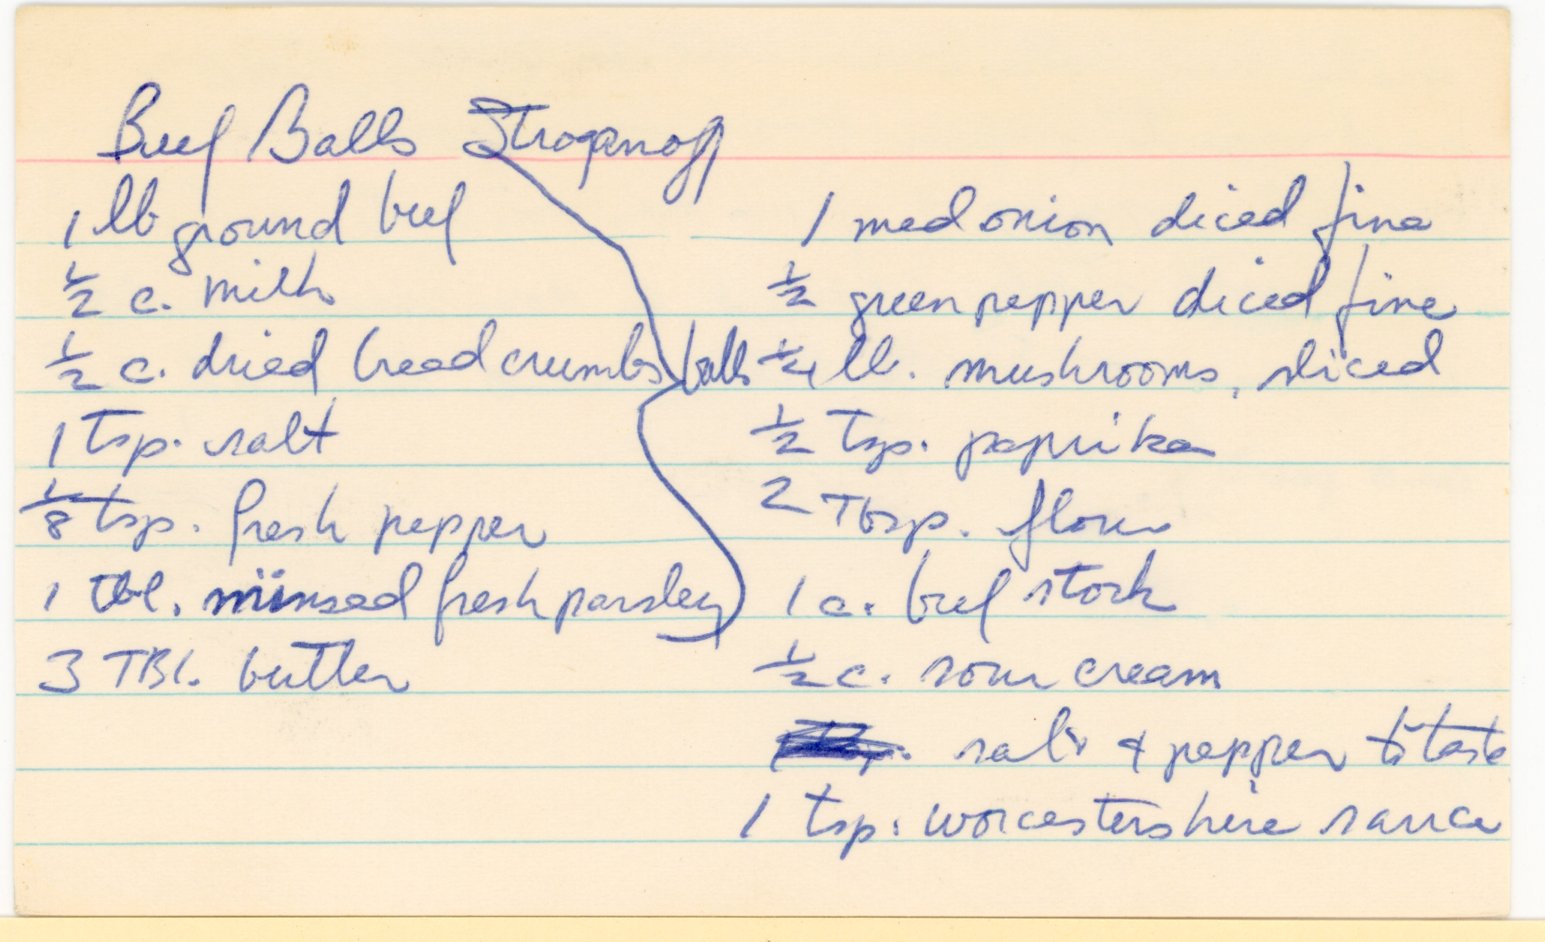 Beef Balls Stroganoff
1 lb ground beef
½ c. milk
½ c. dried bread crumbs
1 Tsp. salt
⅛ tsp. fresh pepper
1 tbl. minsed fresh parsley
3 TBl. butter
balls
1 med onion diced fine
½ green pepper diced fine
¼ lb. mushrooms, sliced
½ Tsp. paprika
2 Tbsp. flour
1 c. beef stock
½ c. sour cream
salt & pepper to taste
1 tsp. worcestershire sauce